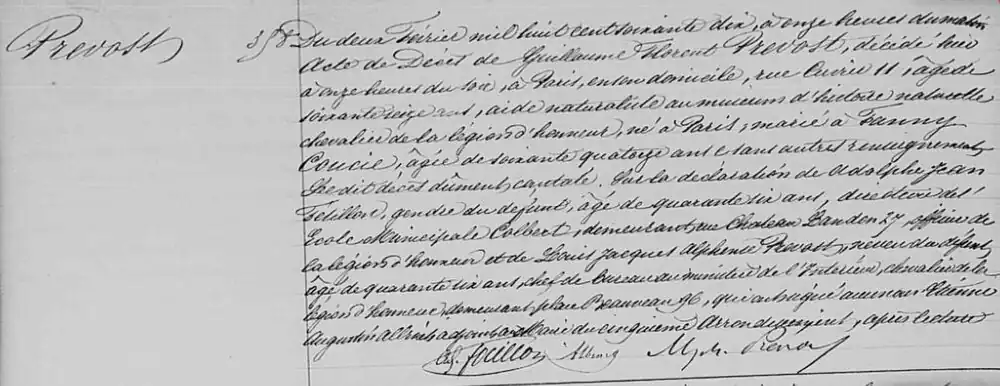 Prevost
358
Du deux Février mil huit cent soixante dix, à onze heures du matin
Acte de Décès de Guillaume Florent Prevost, décédé hier
à onze heures du soir, à Paris, en son domicile, rue Cuvier 11, âgé de
soixante seize ans, aide naturaliste au muséum d'histoire naturelle
chevalier de la légion d'honneur, né à Paris, marié à Fanny
Coucie, âgée de soixante quatorze ans sans autres renseignements
Le dit décès dûment constaté. Sur la déclaration de Adolphe Jean
gendre du défunt, âgé de quarante six ans, directeur de l'
Ecole Municipale Colbert, demeurant rue Chateau Landon 27, officier de
la légion d'honneur et de Louis Jacques Alphonse Prevost, neveu du défunt
âgé de quarante six ans, chef de bureau au ministère de l'Intérieur, chevalier de la
légion d'honneur, demeurant place Beauveau 96, qui ont signé avec nous Etienne
Augustin adjoint au Maire du cinquième Arrondissement, après lecture
Alph. Prevost